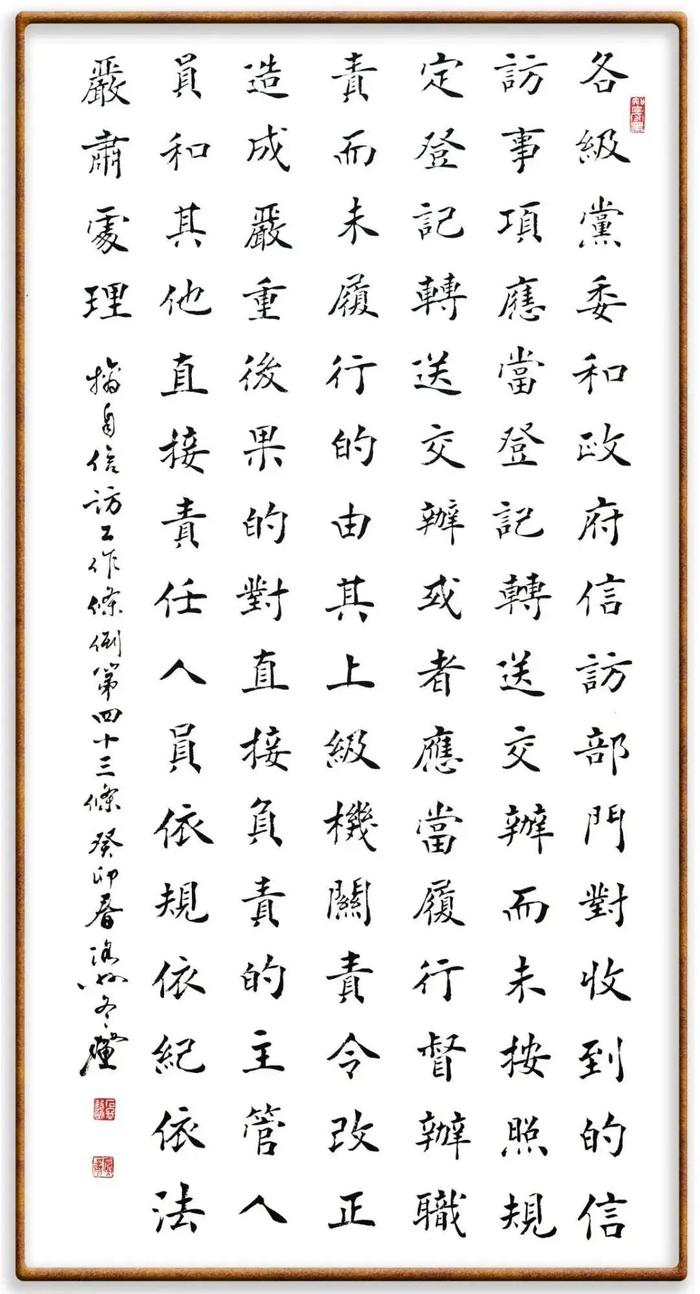 各級黨委和政府信訪部門對收到的信
訪事項應當登記轉送交辦而未按照規
定登記轉送交辦或者應當履行督辦職
責而未履行的由其上級機關責令改正
造成嚴重後果的對直接負責的主管人
員和其他直接責任人員依規依紀依法
嚴肅處理
摘自信訪工作條例第四十三條 癸卯春